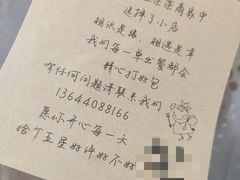 茫茫商家中
选择了小店
相识是缘，相遇是幸
我们每一单外餐都会
精心打好包
有任何问题请联系我们
13644088166
愿你开心每一天
给个五星好评好不好